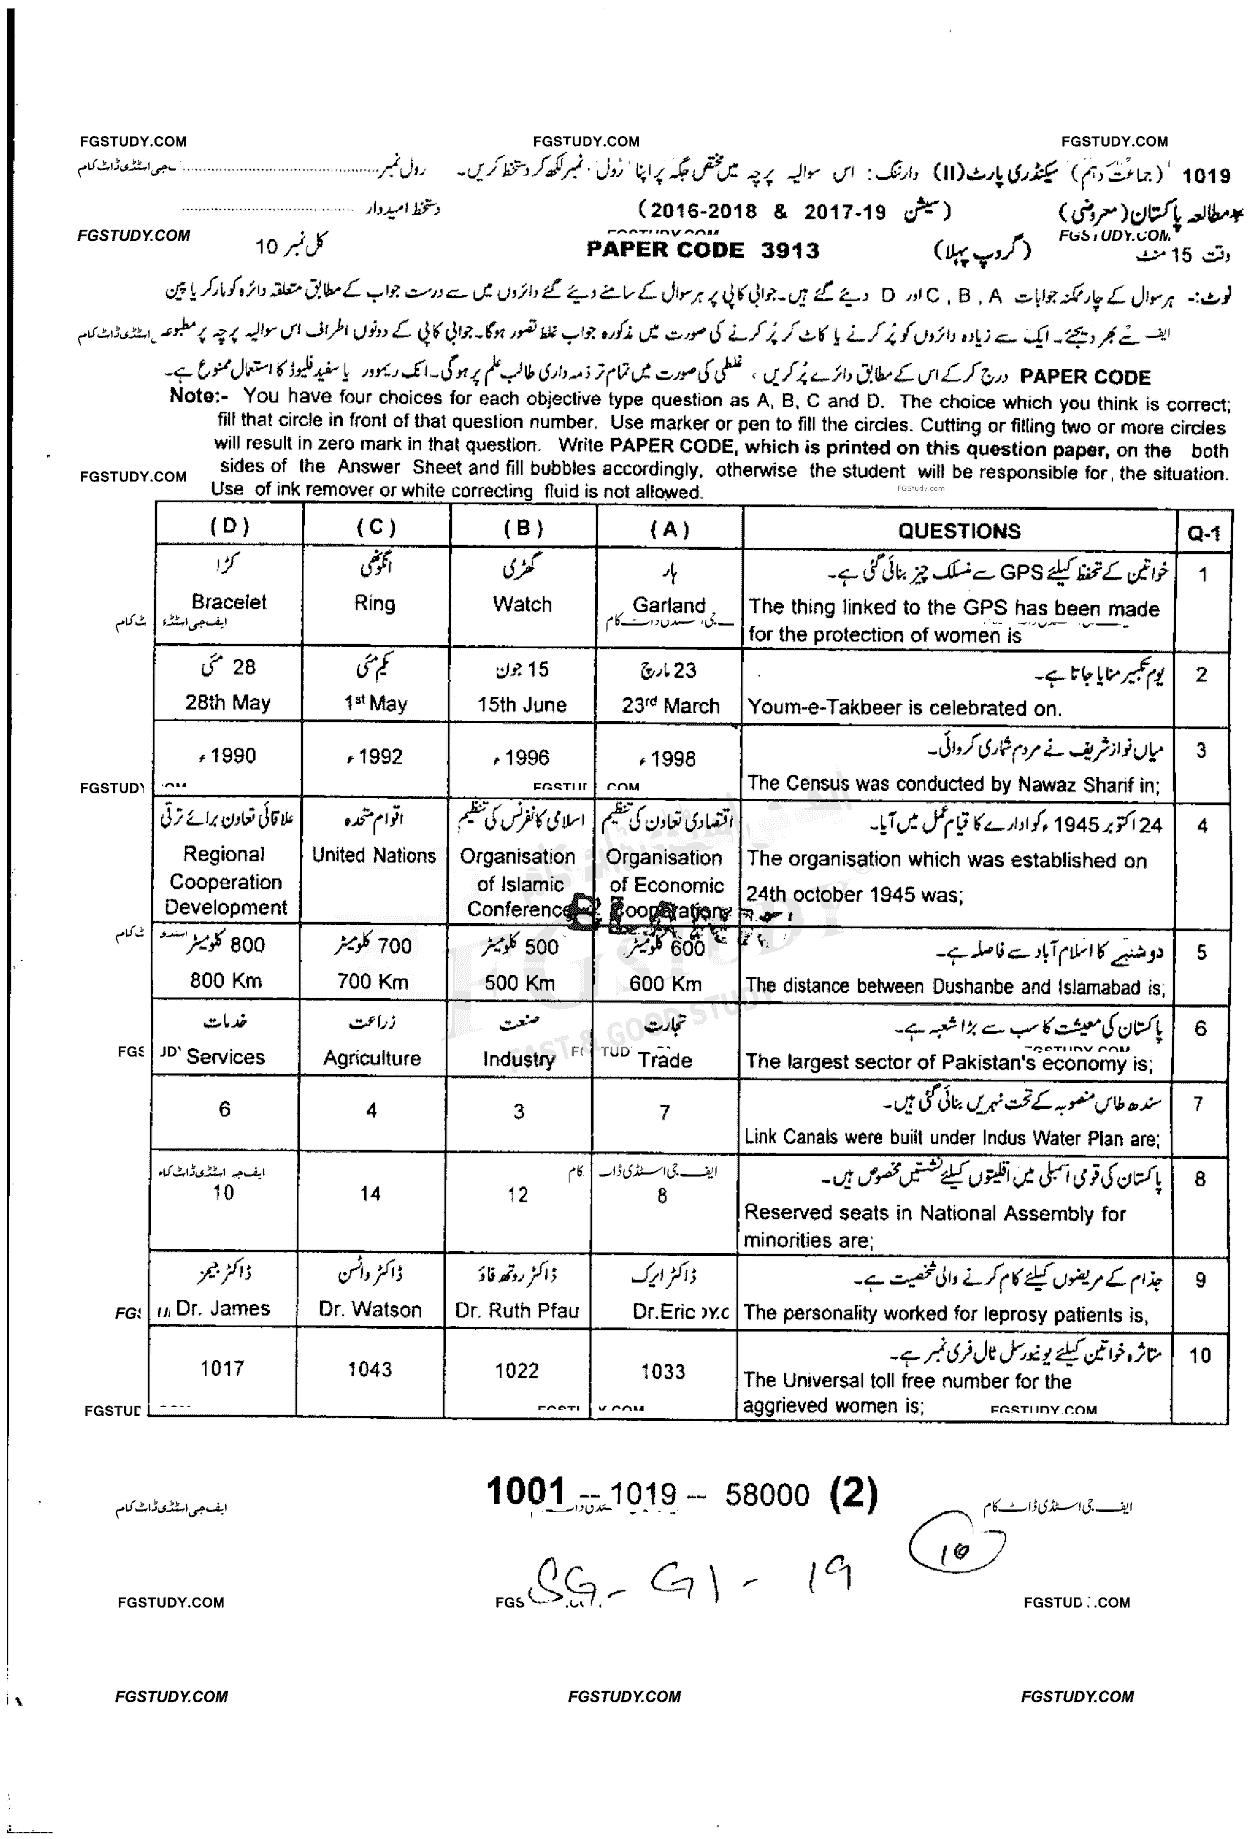 FGSTUDY.COM FGSTUDY.COM FGSTUDY.COM
1019 (جماعت دہم) سیکنڈری پارٹ (II) وارننگ: اس سوالیہ پرچہ میں مختص جگہ پر اپنا رول نمبر لکھ کر دستخط کریں۔ رول نمبر
مطالعہ پاکستان (معروضی) (سیشن 2017-19 & 2016-2018) دستخط امیدوار
FGSTUDY.COM
وقت 15 منٹ (گروپ پہلا) PAPER CODE 3913 کل نمبر 10
نوٹ:- ہر سوال کے چار ممکنہ جوابات A ، B ، C اور D دیئے گئے ہیں۔ جوابی کاپی پر ہر سوال کے سامنے دیئے گئے دائروں میں سے درست جواب کے مطابق متعلقہ دائرہ کو مارکر یا پین
سے بھر دیجئے۔ ایک سے زیادہ دائروں کو پُر کرنے یا کاٹ کر پُر کرنے کی صورت میں مذکورہ جواب غلط تصور ہوگا۔ جوابی کاپی کے دونوں اطراف اس سوالیہ پرچہ پر مطبوعہ
PAPER CODE درج کر کے اس کے مطابق دائرے پُر کریں ، غلطی کی صورت میں تمام تر ذمہ داری طالب علم پر ہوگی۔ انک ریموور یا سفید فلیوڈ کا استعمال ممنوع ہے۔
Note:- You have four choices for each objective type question as A, B, C and D. The choice which you think is correct;
fill that circle in front of that question number. Use marker or pen to fill the circles. Cutting or filling two or more circles
will result in zero mark in that question. Write PAPER CODE, which is printed on this question paper, on the both
sides of the Answer Sheet and fill bubbles accordingly, otherwise the student will be responsible for, the situation.
FGSTUDY.COM
Use of ink remover or white correcting fluid is not allowed.
(D) (C) (B) (A) QUESTIONS Q-1
کڑا انگوٹھی گھڑی ہار خواتین کے تحفظ کیلئے GPS سے منسلک چیز بنائی گئی ہے۔ 1
Bracelet Ring Watch Garland The thing linked to the GPS has been made
for the protection of women is
28 مئی یکم مئی 15 جون 23 مارچ یوم تکبیر منایا جاتا ہے۔ 2
28th May 1st May 15th June 23rd March Youm-e-Takbeer is celebrated on.
1990ء 1992ء 1996ء 1998ء میاں نواز شریف نے مردم شماری کروائی۔ 3
The Census was conducted by Nawaz Sharif in;
علاقائی تعاون برائے ترقی اقوام متحدہ اسلامی کانفرنس کی تنظیم اقتصادی تعاون کی تنظیم 24 اکتوبر 1945ء کو ادارے کا قیام عمل میں آیا۔ 4
Regional United Nations Organisation Organisation The organisation which was established on
Cooperation of Islamic of Economic 24th october 1945 was;
Development Conference Cooperation
800 کلومیٹر 700 کلومیٹر 500 کلومیٹر 600 کلومیٹر دوشنبے کا اسلام آباد سے فاصلہ ہے۔ 5
800 Km 700 Km 500 Km 600 Km The distance between Dushanbe and Islamabad is;
خدمات زراعت صنعت تجارت پاکستان کی معیشت کا سب سے بڑا شعبہ ہے۔ 6
Services Agriculture Industry Trade The largest sector of Pakistan's economy is;
6 4 3 7 سندھ طاس منصوبہ کے تحت نہریں بنائی گئی ہیں۔ 7
Link Canals were built under Indus Water Plan are;
10 14 12 8 پاکستان کی قومی اسمبلی میں اقلیتوں کیلئے نشستیں مخصوص ہیں۔ 8
Reserved seats in National Assembly for
minorities are;
ڈاکٹر جیمز ڈاکٹر واٹسن ڈاکٹر روتھ فاؤ ڈاکٹر ایرک جذام کے مریضوں کیلئے کام کرنے والی شخصیت ہے۔ 9
Dr. James Dr. Watson Dr. Ruth Pfau Dr.Eric The personality worked for leprosy patients is,
1017 1043 1022 1033 متاثرہ خواتین کیلئے یونیورسل ٹال فری نمبر ہے۔ 10
The Universal toll free number for the
aggrieved women is; FGSTUDY.COM
1001 -- 1019 -- 58000 (2)
ایف جی اسٹڈی ڈاٹ کام ایف جی اسٹڈی ڈاٹ کام
10
SG - G1 - 19
FGSTUDY.COM FGSTUD .COM
FGSTUDY.COM FGSTUDY.COM FGSTUDY.COM